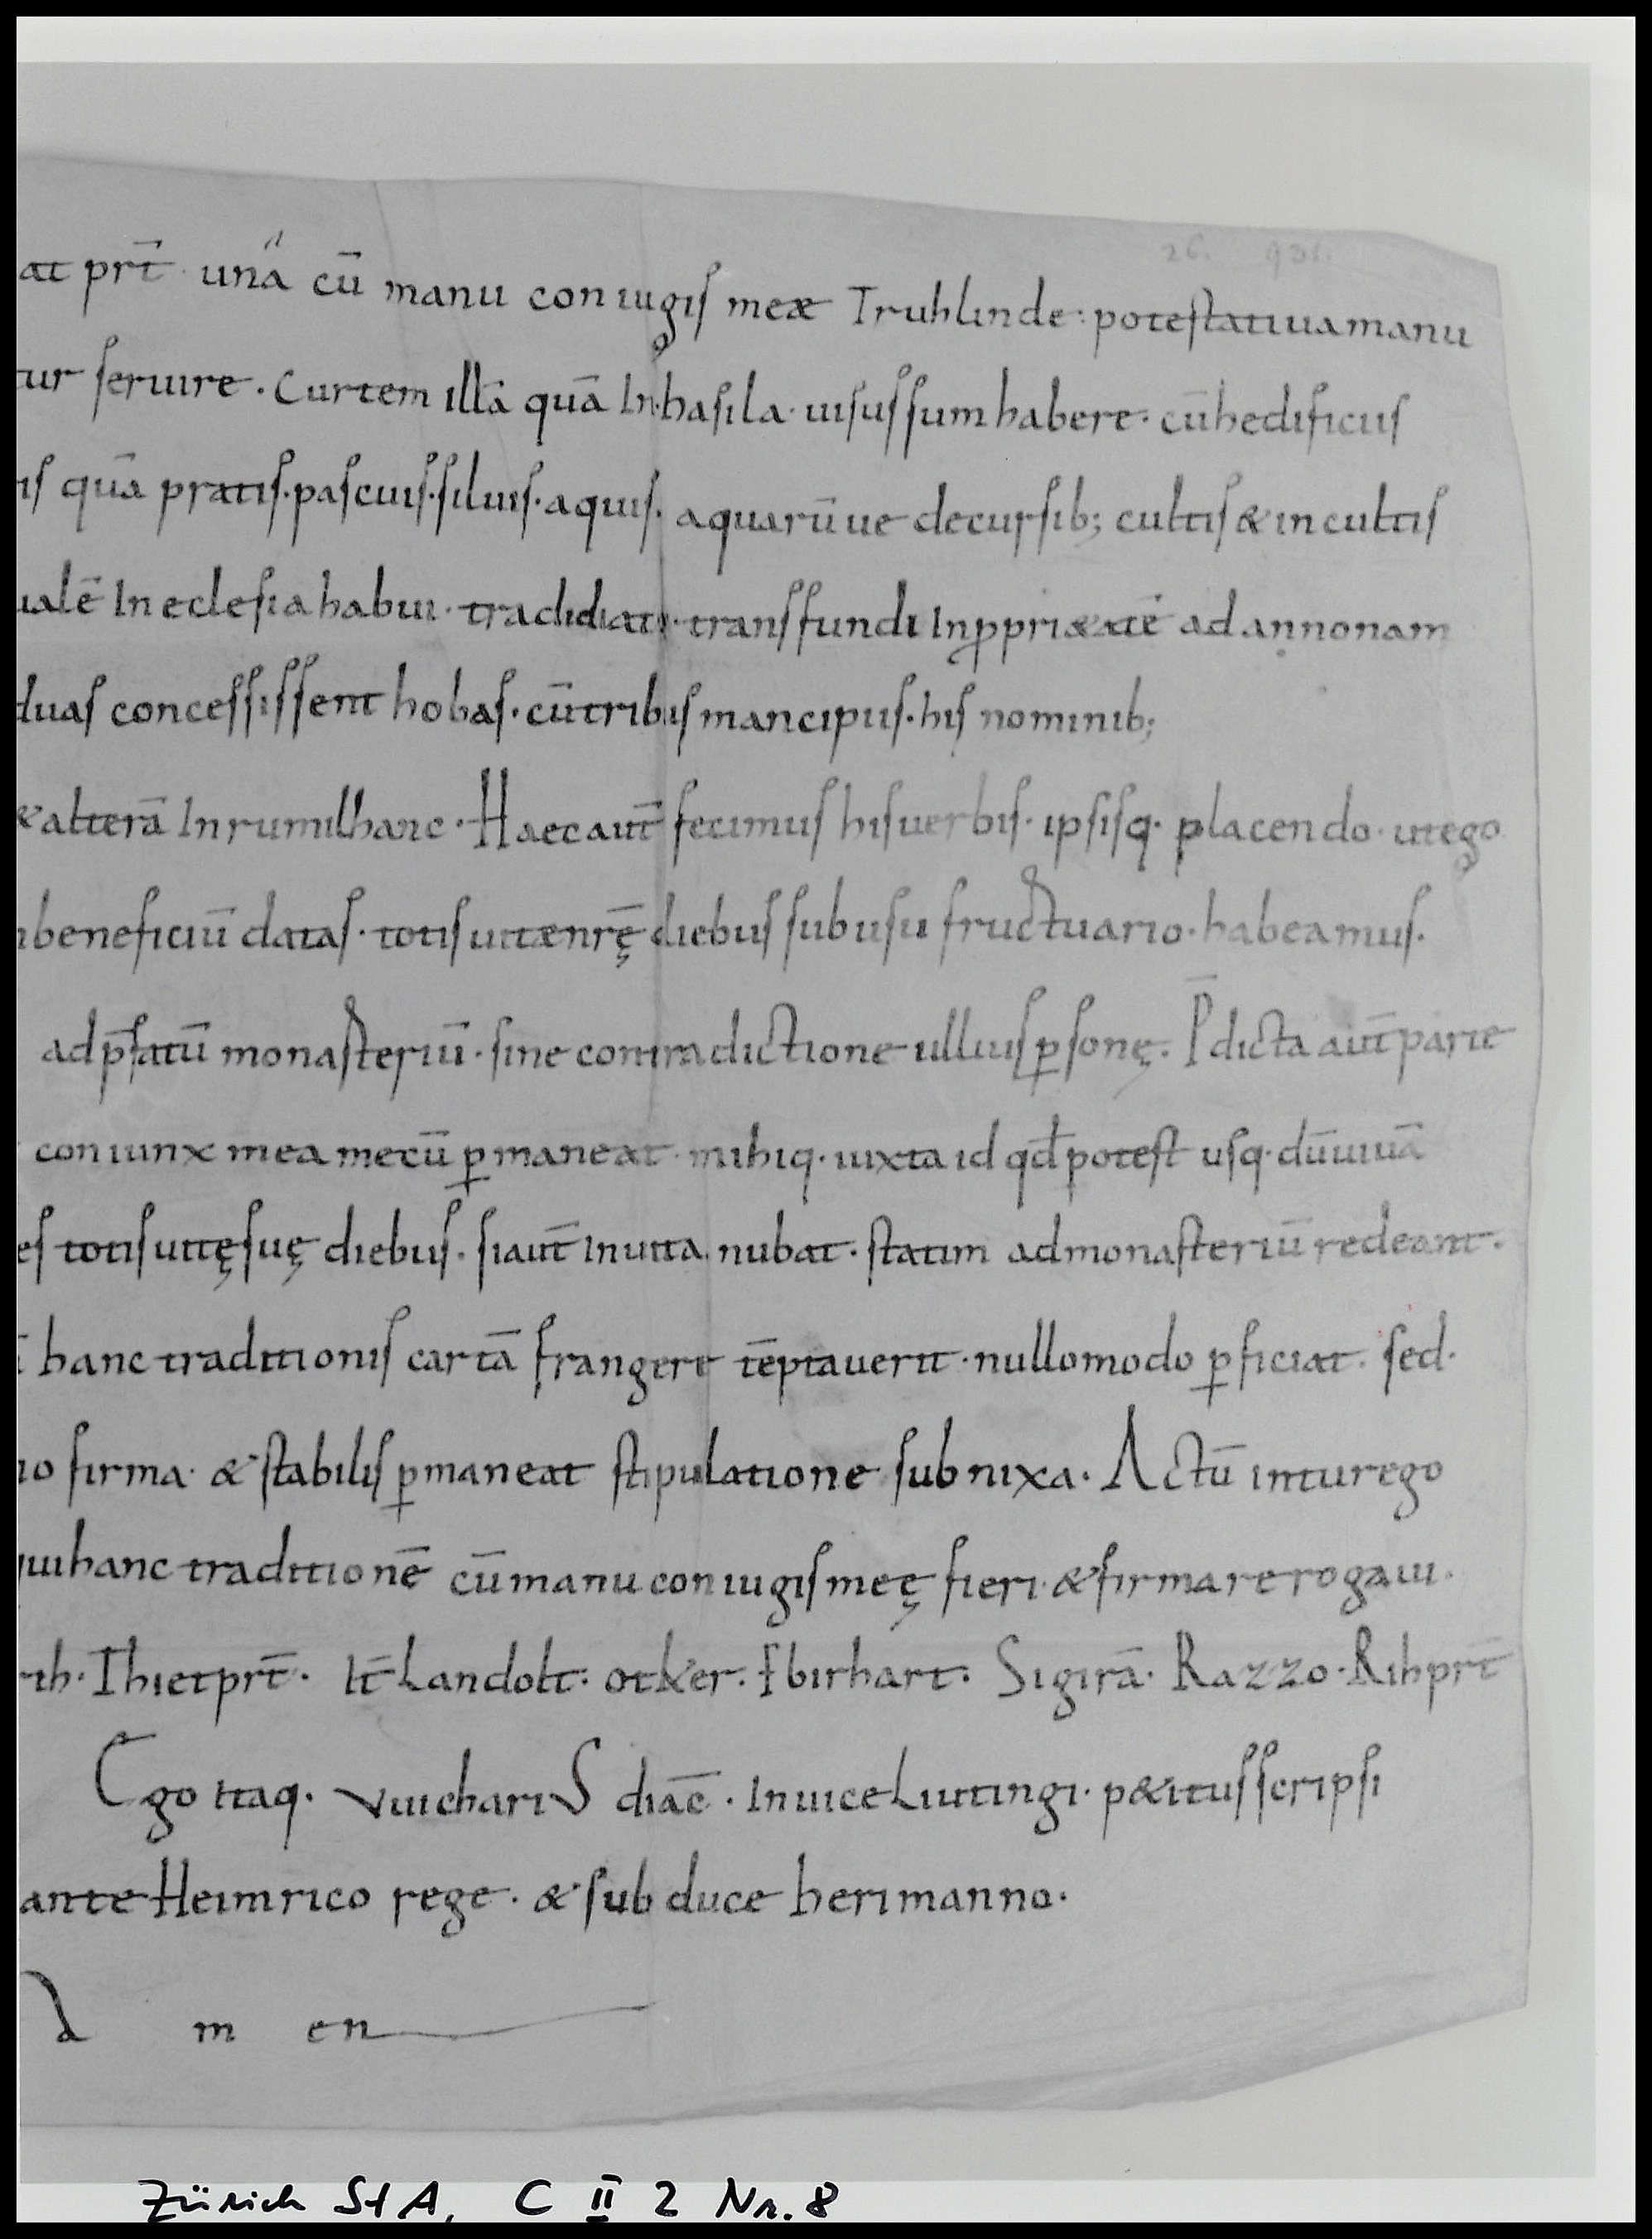 26. 931.
at prt̄ · unā cū manu coniugis meæ Truhlinde : potestatiua manu
tur seruire · Curtem illā quā In hasila · uisus sum habere · cū hedificiis
is quā pratis · pascuis · siluis · aquis · aquarū ue decursib; cultis & in cultis
ualē In eclesia habui · tradidi atq · transfundi In ꝓpri&atē ad annonam
duas concessissent hobas · cū tribus mancipiis · his nominib;
& alterā In rumilhanc · Haec aut̄ fecimus his uerbis · ipsisq · placendo · ut ego
nbeneficiū datas · totis uitæ nrę̄ diebus sub usu fructuario · habeamus ·
ad p̄fatū monasteriū · sine contradictione ullius ꝑsonę · P̄dicta aut̄ parte
coniunx mea mecū ꝑmaneat · mihiq · iuxta id qd̄ potest usq · dū uiuā
es totis uitę suę diebus · si aut̄ inuita nubat · statim ad monasteriū redeant ·
hanc traditionis cartā frangere tēptauerit · nullomodo ꝑficiat · sed ·
no firma · & stabilis ꝑmaneat stipulatione subnixa · Actū in turego
qui hanc traditionē cū manu coniugis meę fieri · & firmare rogaui ·
rih · Thietprt̄ · It̄ Landolt · otker · Ebirhart · Sigirā · Razzo · Rihprt̄
Ego itaq · VuichariS diac̄ · In uice Liutingi · p&itus scripsi
ante Heimrico rege · & sub duce herimanno ·
A m en
Zürich StA, C II 2 Nr. 8